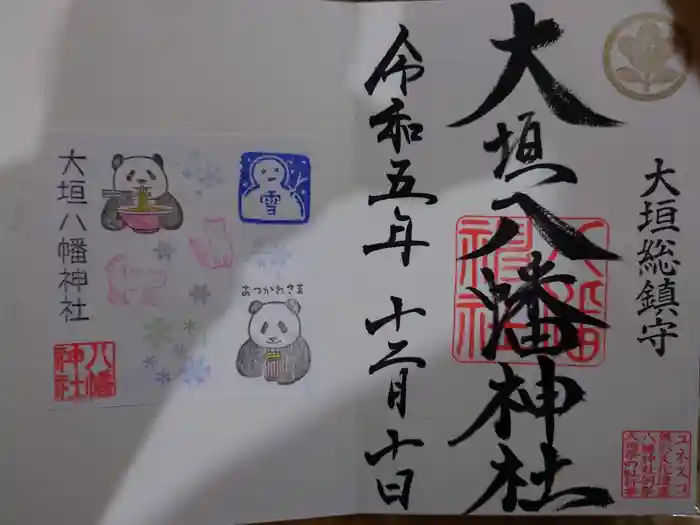 大垣総鎮守
大垣八幡神社
八幡神社
令和五年 十二月十日
ユネスコ
大垣八幡神社
雪
おつかれさま
八幡
神社